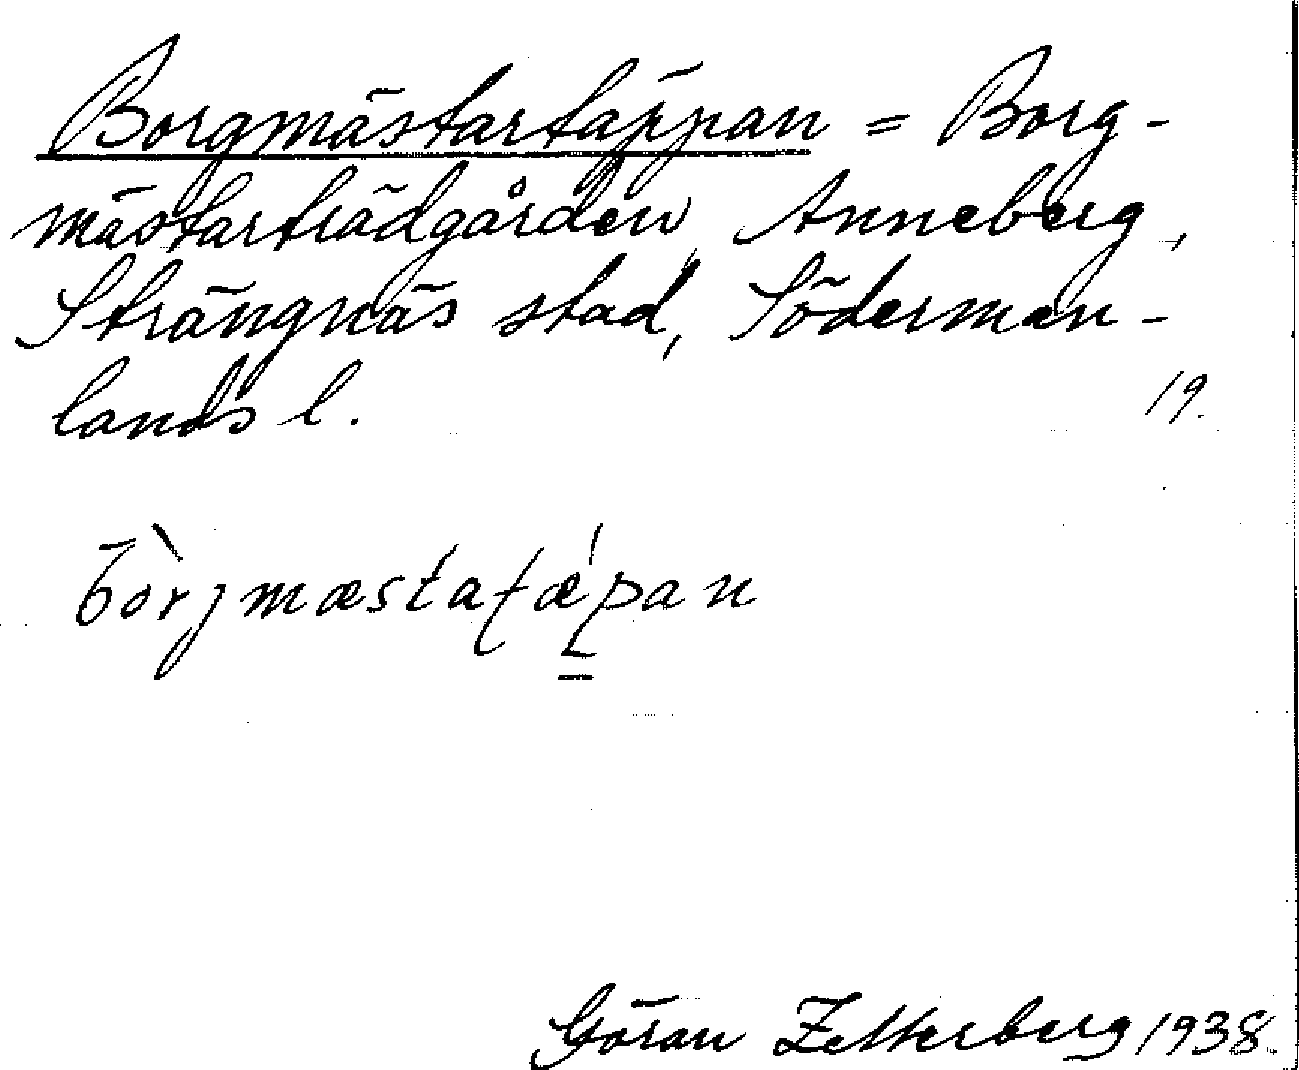 Borgmästartäppan = Borg-
mästarträdgården, Anneberg,
Strängnäs stad, Söderman-
lands l. 19.
bòrjmæstatǽpan
Göran Zetterberg 1938.